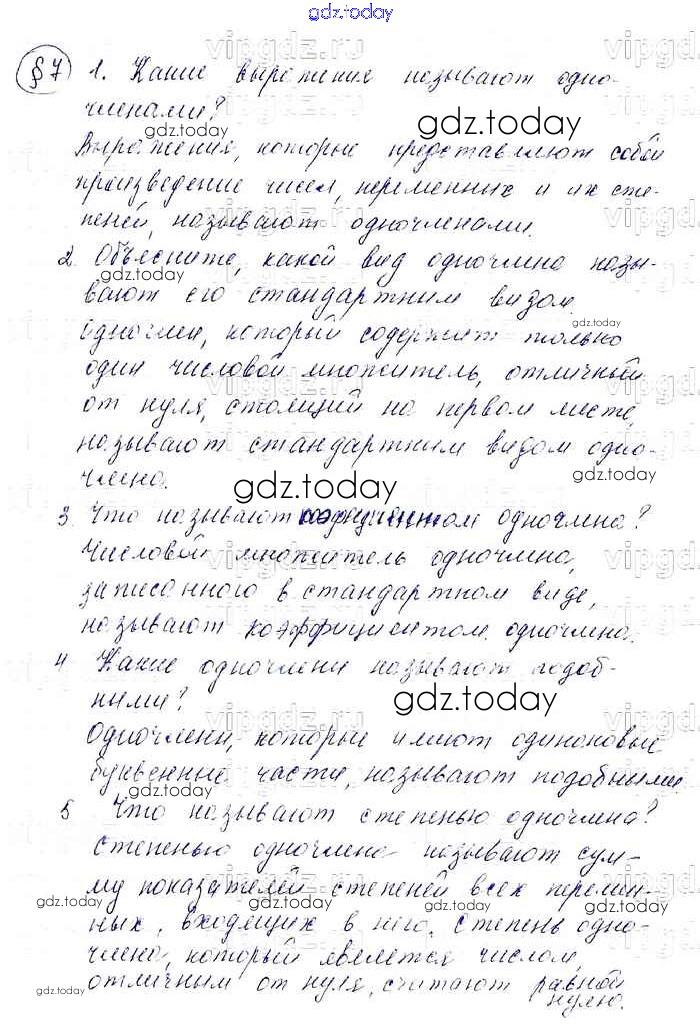 gdz.today
§7 1. Какие выражения называют одно-
членами?
Выражения, которые представляют собой
произведение чисел, переменных и их сте-
пеней, называют одночленами.
2. Объясните, какой вид одночлена назы-
вают его стандартным видом.
Одночлен, который содержит только
один числовой множитель, отличный
от нуля, стоящий на первом месте,
называют стандартным видом одно-
члена.
3. Что называют коэффициентом одночлена?
Числовой множитель одночлена,
записанного в стандартном виде,
называют коэффициентом одночлена.
4 Какие одночлены называют подоб-
ными?
Одночлены, которые имеют одинаковые
буквенные части, называют подобными.
5 Что называют степенью одночлена?
Степенью одночлена называют сум-
му показателей степеней всех перемен-
ных, входящих в него. Степень одно-
члена, который является числом,
отличным от нуля, считают равной
нулю.